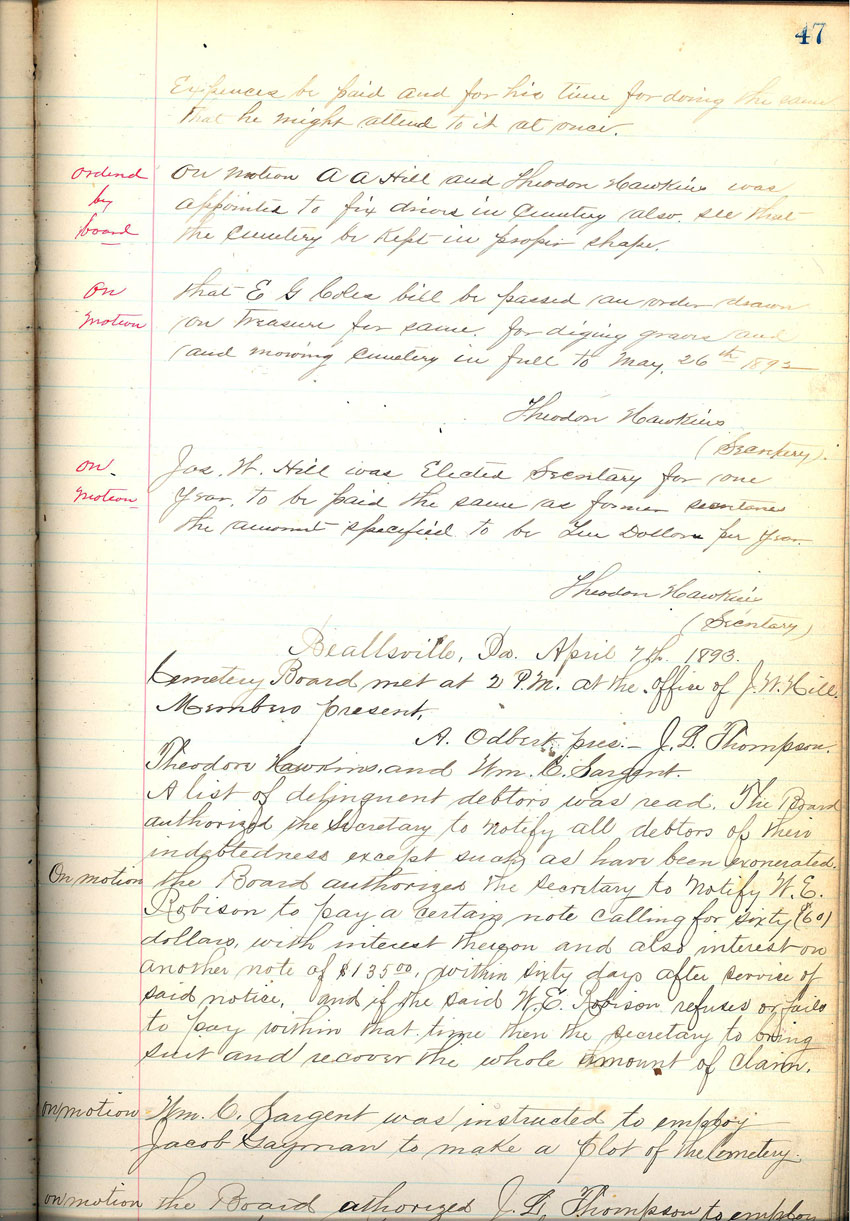 47
Expences be paid and for his time for doing the same
that he might attend to it at once.
ordend by board
On motion A A Hill and Theodon Hawkins was
appointed to fix drivs in Cemetery also see that
the Cemetery be Kept in proper shape.
On motion
that E G Coles bill be passed an order drawn
on Treasure for same for diging graves and
and mowing Cemetery in full to May, 26th 1892
Theodon Hawkins
(Secretery).
on motion
Jas. W. Hill was Elected Secretary for one
Year, to be paid the same as former
the amount specified to be Dollars per Year
Theodon Hawkins
(Secretary)
Beallsville, Pa. April 7th. 1893.
Cemetery Board met at 2 P.M. at the office of J. W. Hill.
Members present,
A. Odbert, pres. - J. L. Thompson.
Theodore Hawkins, and Wm. C. Sargent.
A list of delinquent debtors was read. The Board
authorized the Secretary to notify all debtors of their
indebtedness except such as have been exonerated.
On motion the Board authorized the secretary to notify W. E.
Robison to pay a certain note calling for sixty (60)
dollars, with interest thereon and also interest on
another note of $135 00, within sixty days after service of
said notice, and if the said W. E. Robison refuses or fails
to pay within that time then the secretary to bring
suit and recover the whole amount of claim.
on motion Wm. C. Sargent was instructed to employ
Jacob Gayman to make a Plot of the Cemetery.
on motion the Board athorized J. L. Thompson to employ